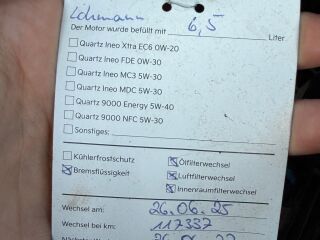 Lohmann
Der Motor wurde befüllt mit 6,5 Liter
Quartz Ineo Xtra EC6 0W-20
Quartz Ineo FDE 0W-30
Quartz Ineo MC3 5W-30
Quartz Ineo MDC 5W-30
Quartz 9000 Energy 5W-40
Quartz 9000 NFC 5W-30
Sonstiges:
Kühlerfrostschutz Ölfilterwechsel
Bremsflüssigkeit Luftfilterwechsel
Innenraumfilterwechsel
Wechsel am: 26.06.25
Wechsel bei km: 117337